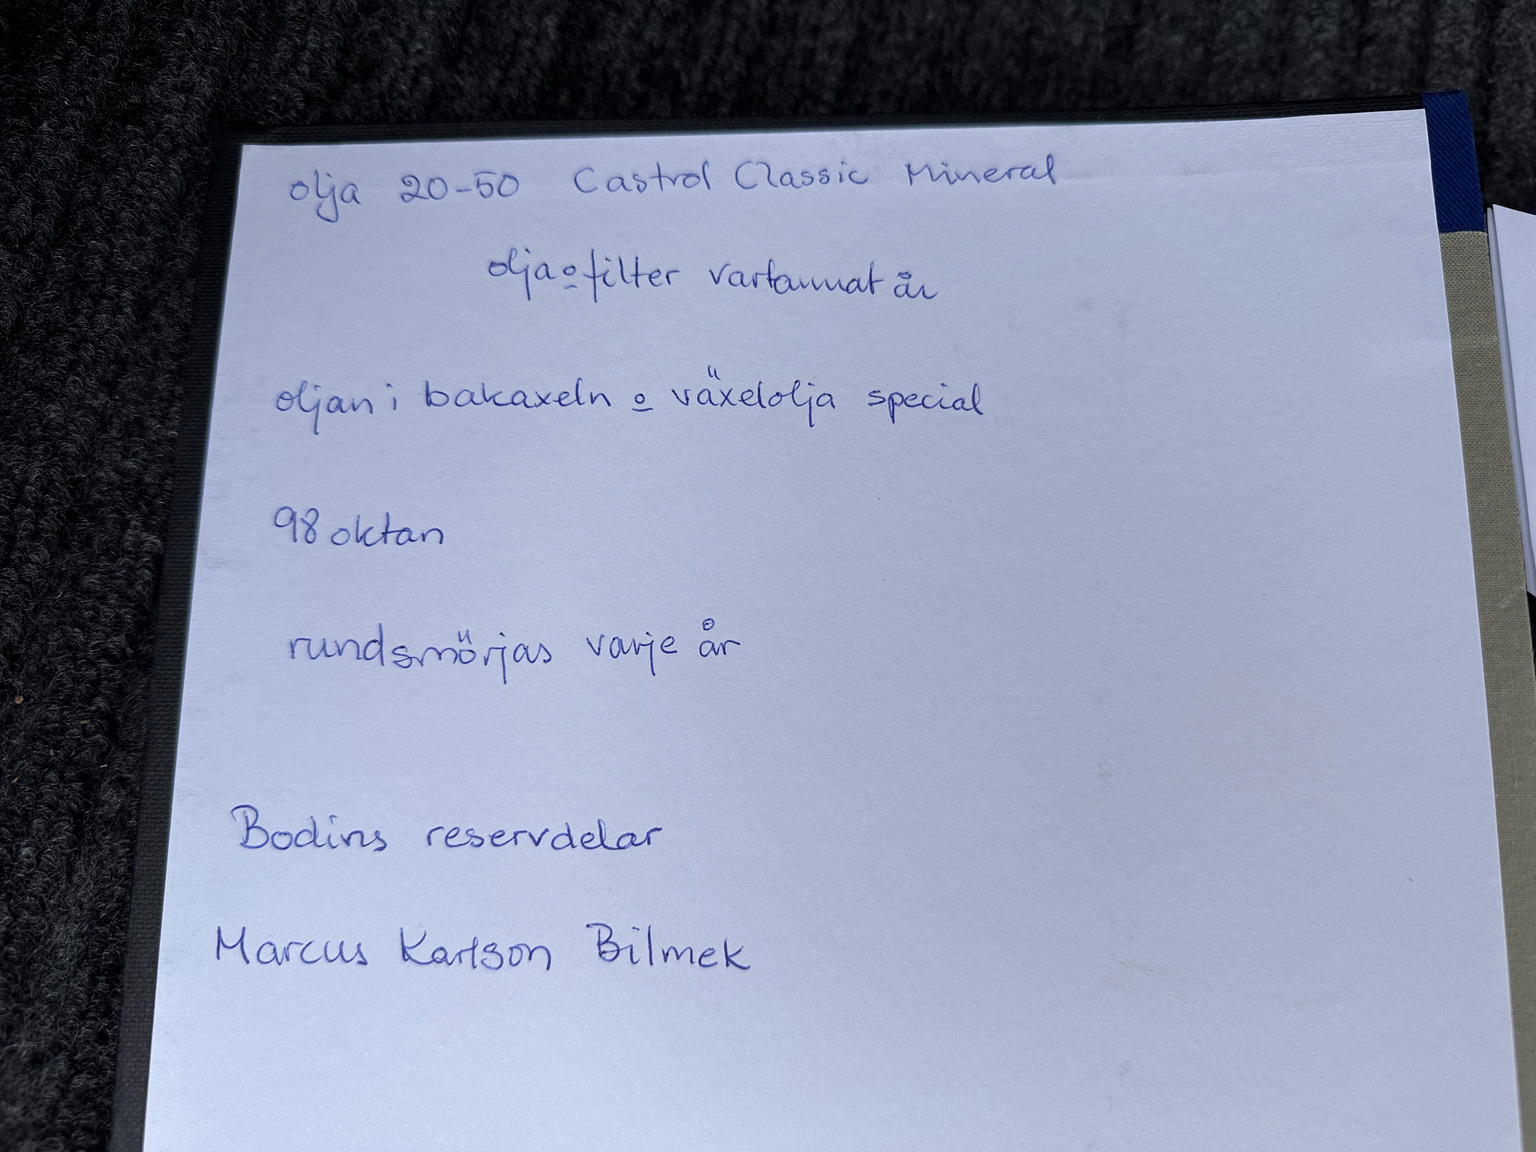 olja 20-50 Castrol Classic Mineral
olja o filter vartannat år
oljan i bakaxeln o växelolja special
98 oktan
rundsmörjas varje år
Bodins reservdelar
Marcus Karlson Bilmek